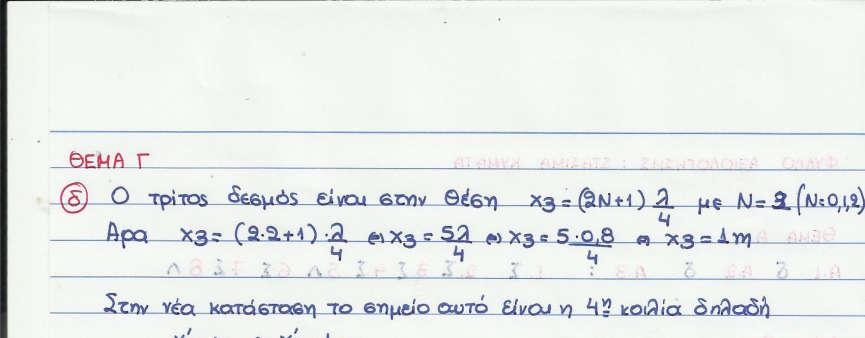 ΘΕΜΑ Γ
δ) Ο τρίτος δεσμός είναι στην θέση x3=(2N+1) λ/4 με N=2 (N=0,1,2)
Αρα x3=(2·2+1)·λ/4 ⇔ x3=5λ/4 ⇔ x3=5·0,8/4 ⇔ x3=1m
Στην νέα κατάσταση το σημείο αυτό είναι η 4η κοιλία δηλαδή